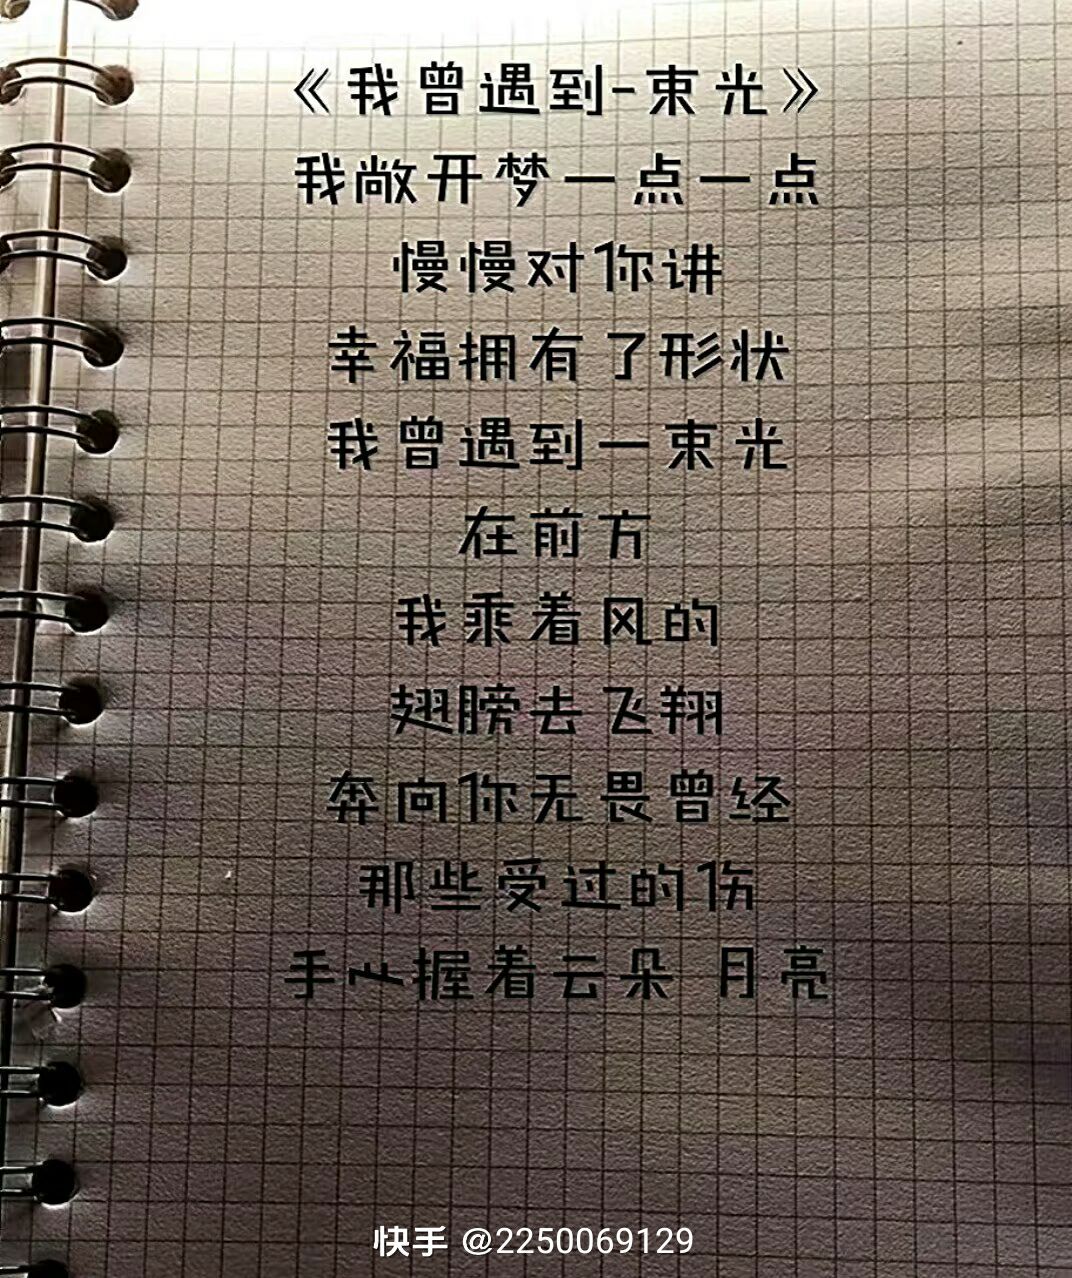 《我曾遇到-束光》
我敞开梦一点一点
慢慢对你讲
幸福拥有了形状
我曾遇到一束光
在前方
我乘着风的
翅膀去飞翔
奔向你无畏曾经
那些受过的伤
手握着云朵 月亮
快手 @2250069129